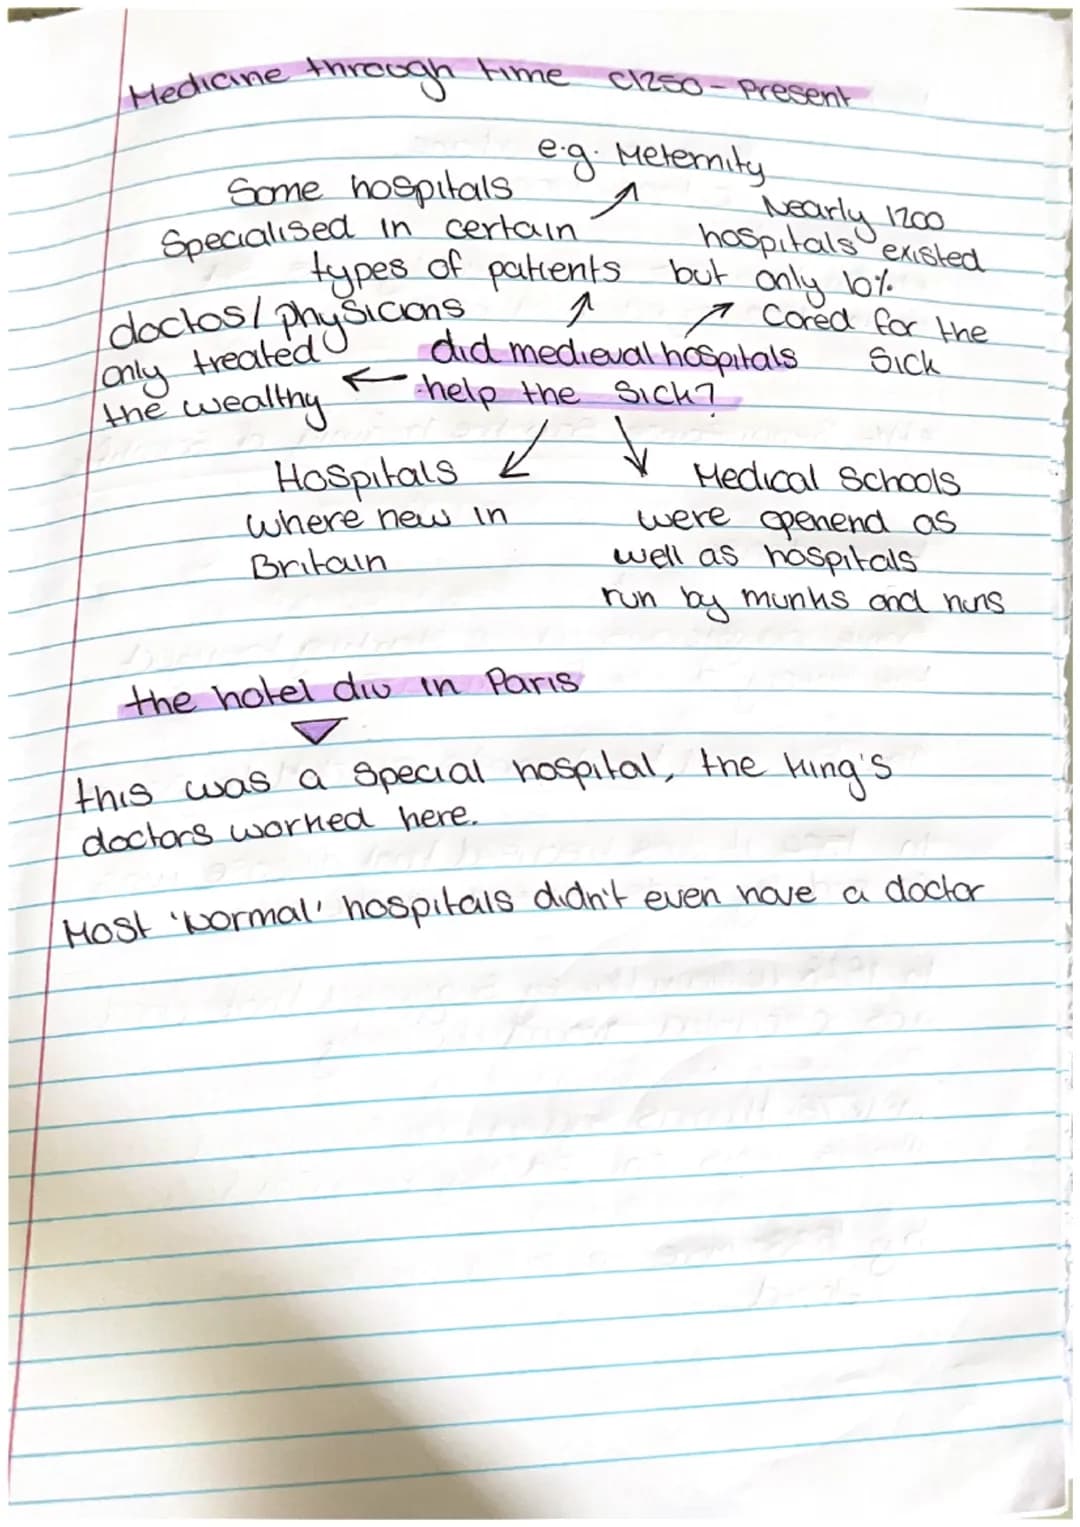 Medicine through time c1250 - Present
e.g. Meternity
Some hospitals
Specialised in certain
types of patients
Nearly 1200
hospitals existed
but only 10%
Cared for the
Sick
doctos/physicians
only treated
the wealthy
did medieval hospitals
help the Sick?
Hospitals
where new in
Britain
Medical Schools
were openend as
well as hospitals
run by munks and nuns
the hotel div in Paris
this was a special hospital, the king's
doctors worked here.
Most 'Normal' hospitals didn't even have a doctor